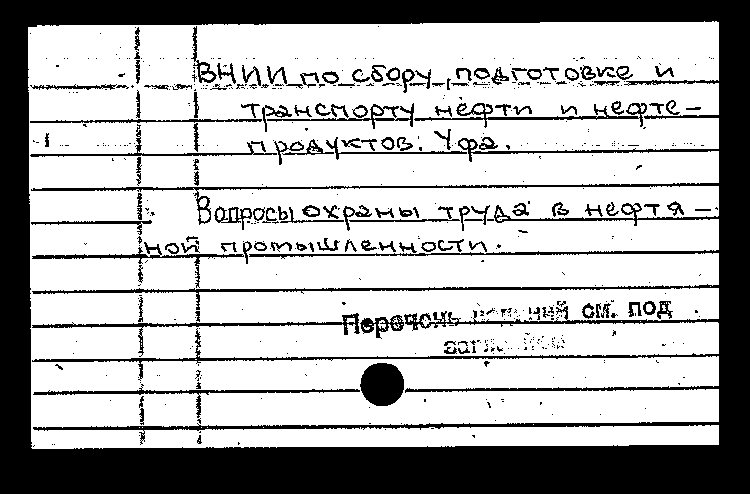 ВНИИ по сбору, подготовке и
транспорту нефти и нефте-
продуктов. Уфа.
Вопросы охраны труда в нефтя-
ной промышленности.
Перечень см. под